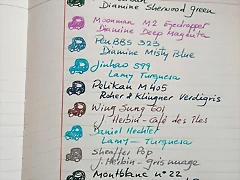 Diamine Sherwood green
Moonman M2 Eyedropper
Diamine Deep Magenta
PenBBS 323
Diamine Misty Blue
Jinhao 599
Lamy Turquesa
Pelikan M405
Roher & Klingner Verdigris
Wing Sung 601
J. Herbin - café des îles
Daniel Hechter
Lamy - Turquesa
Sheaffer Pop
J. Herbin - gris nuage
Montblanc nº 22